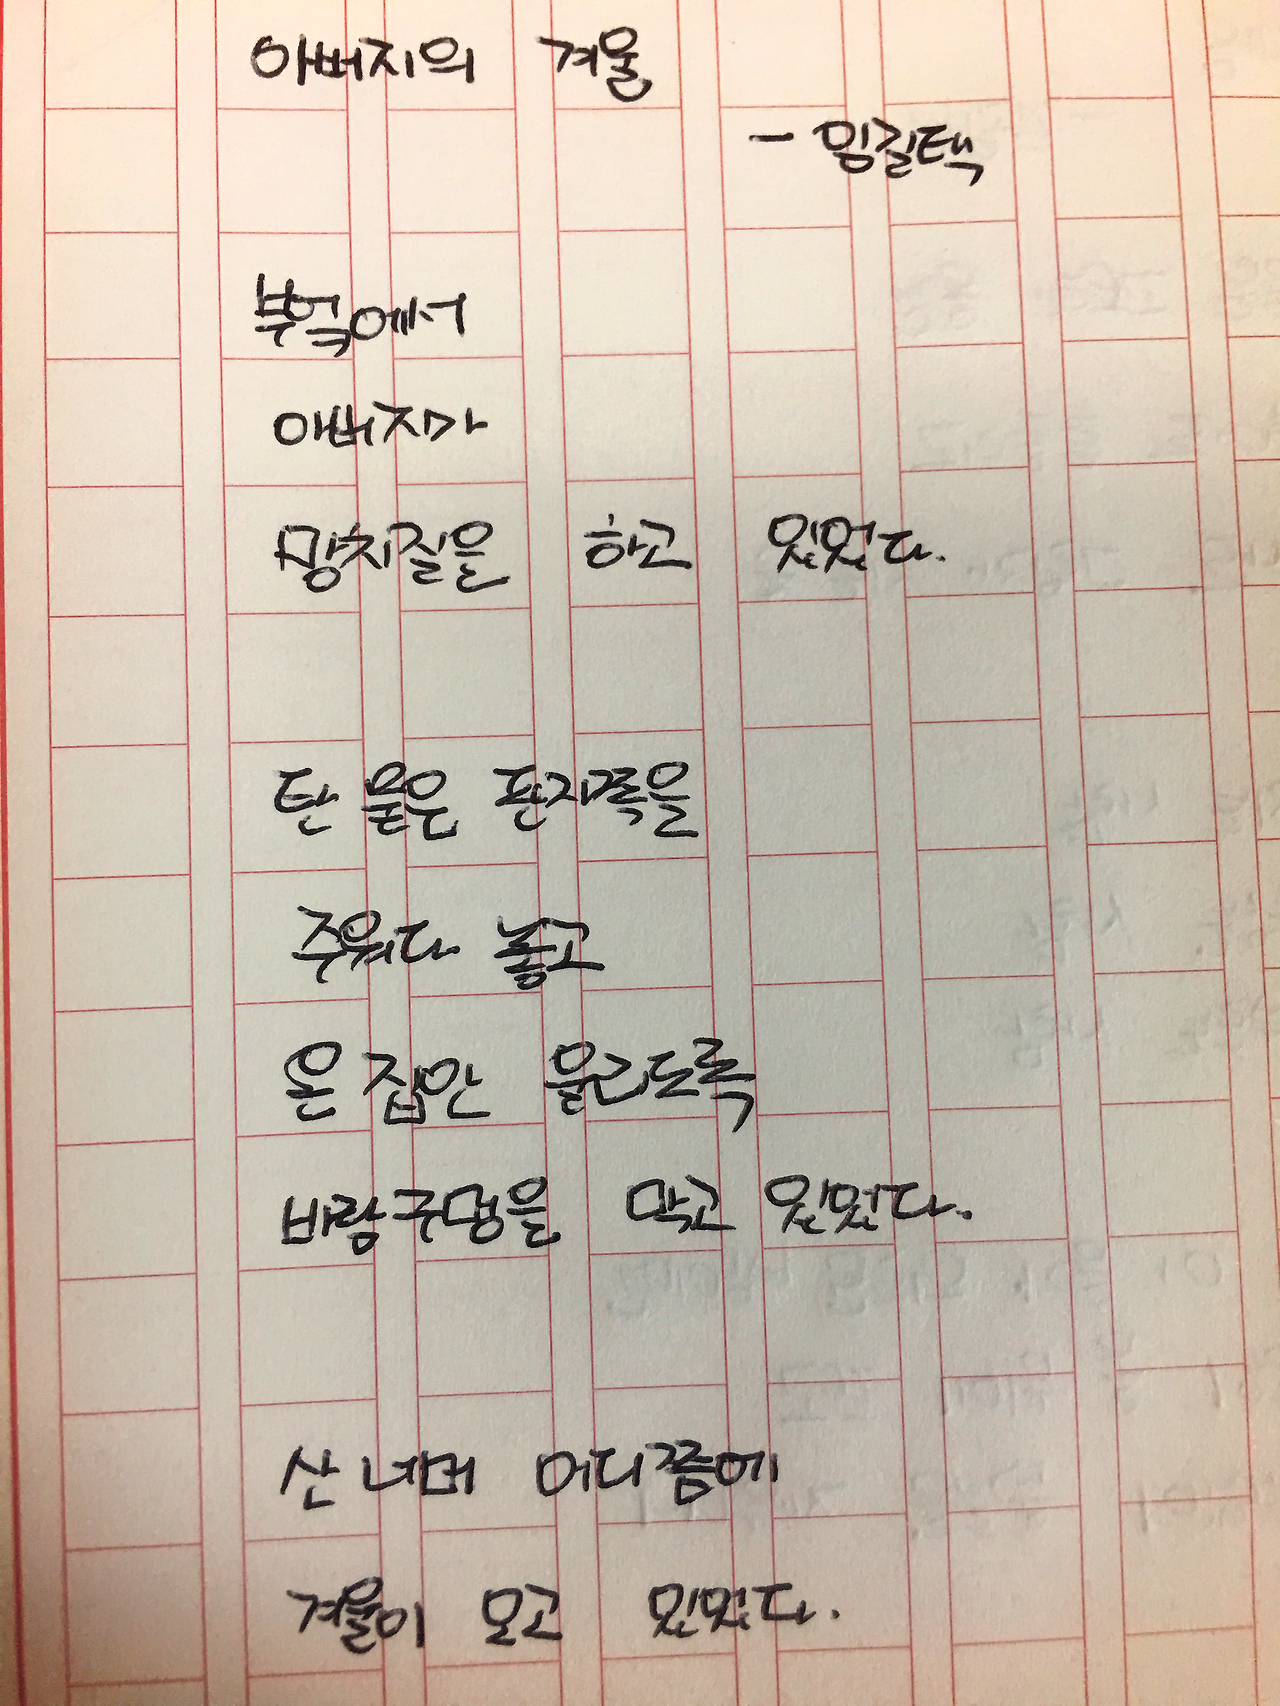 아버지의 겨울
- 임길택
부엌에서
아버지가
망치질을 하고 있었다.
탄 물은 판자쪽을
주워다 놓고
온 집안 울리도록
바람구멍을 막고 있었다.
산 너머 어디쯤에
겨울이 오고 있었다.